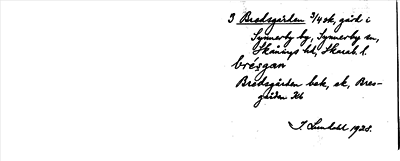 3 Bredsgården 3/4 sk, gård i
Synnerby by, Synnerby sn,
Skånings hd, Skarab. l.
brésgan
Bredsgården bek, ek, Bres-
gården Kb
I. Lundahl 1928.